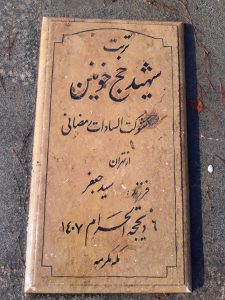 تربت
شهید حج خونین
شوکت السادات رمضانی
از تهران
فرزند: سید جعفر
۶ ذیحجة الحرام ۱۴۰۷
مکه مکرمه